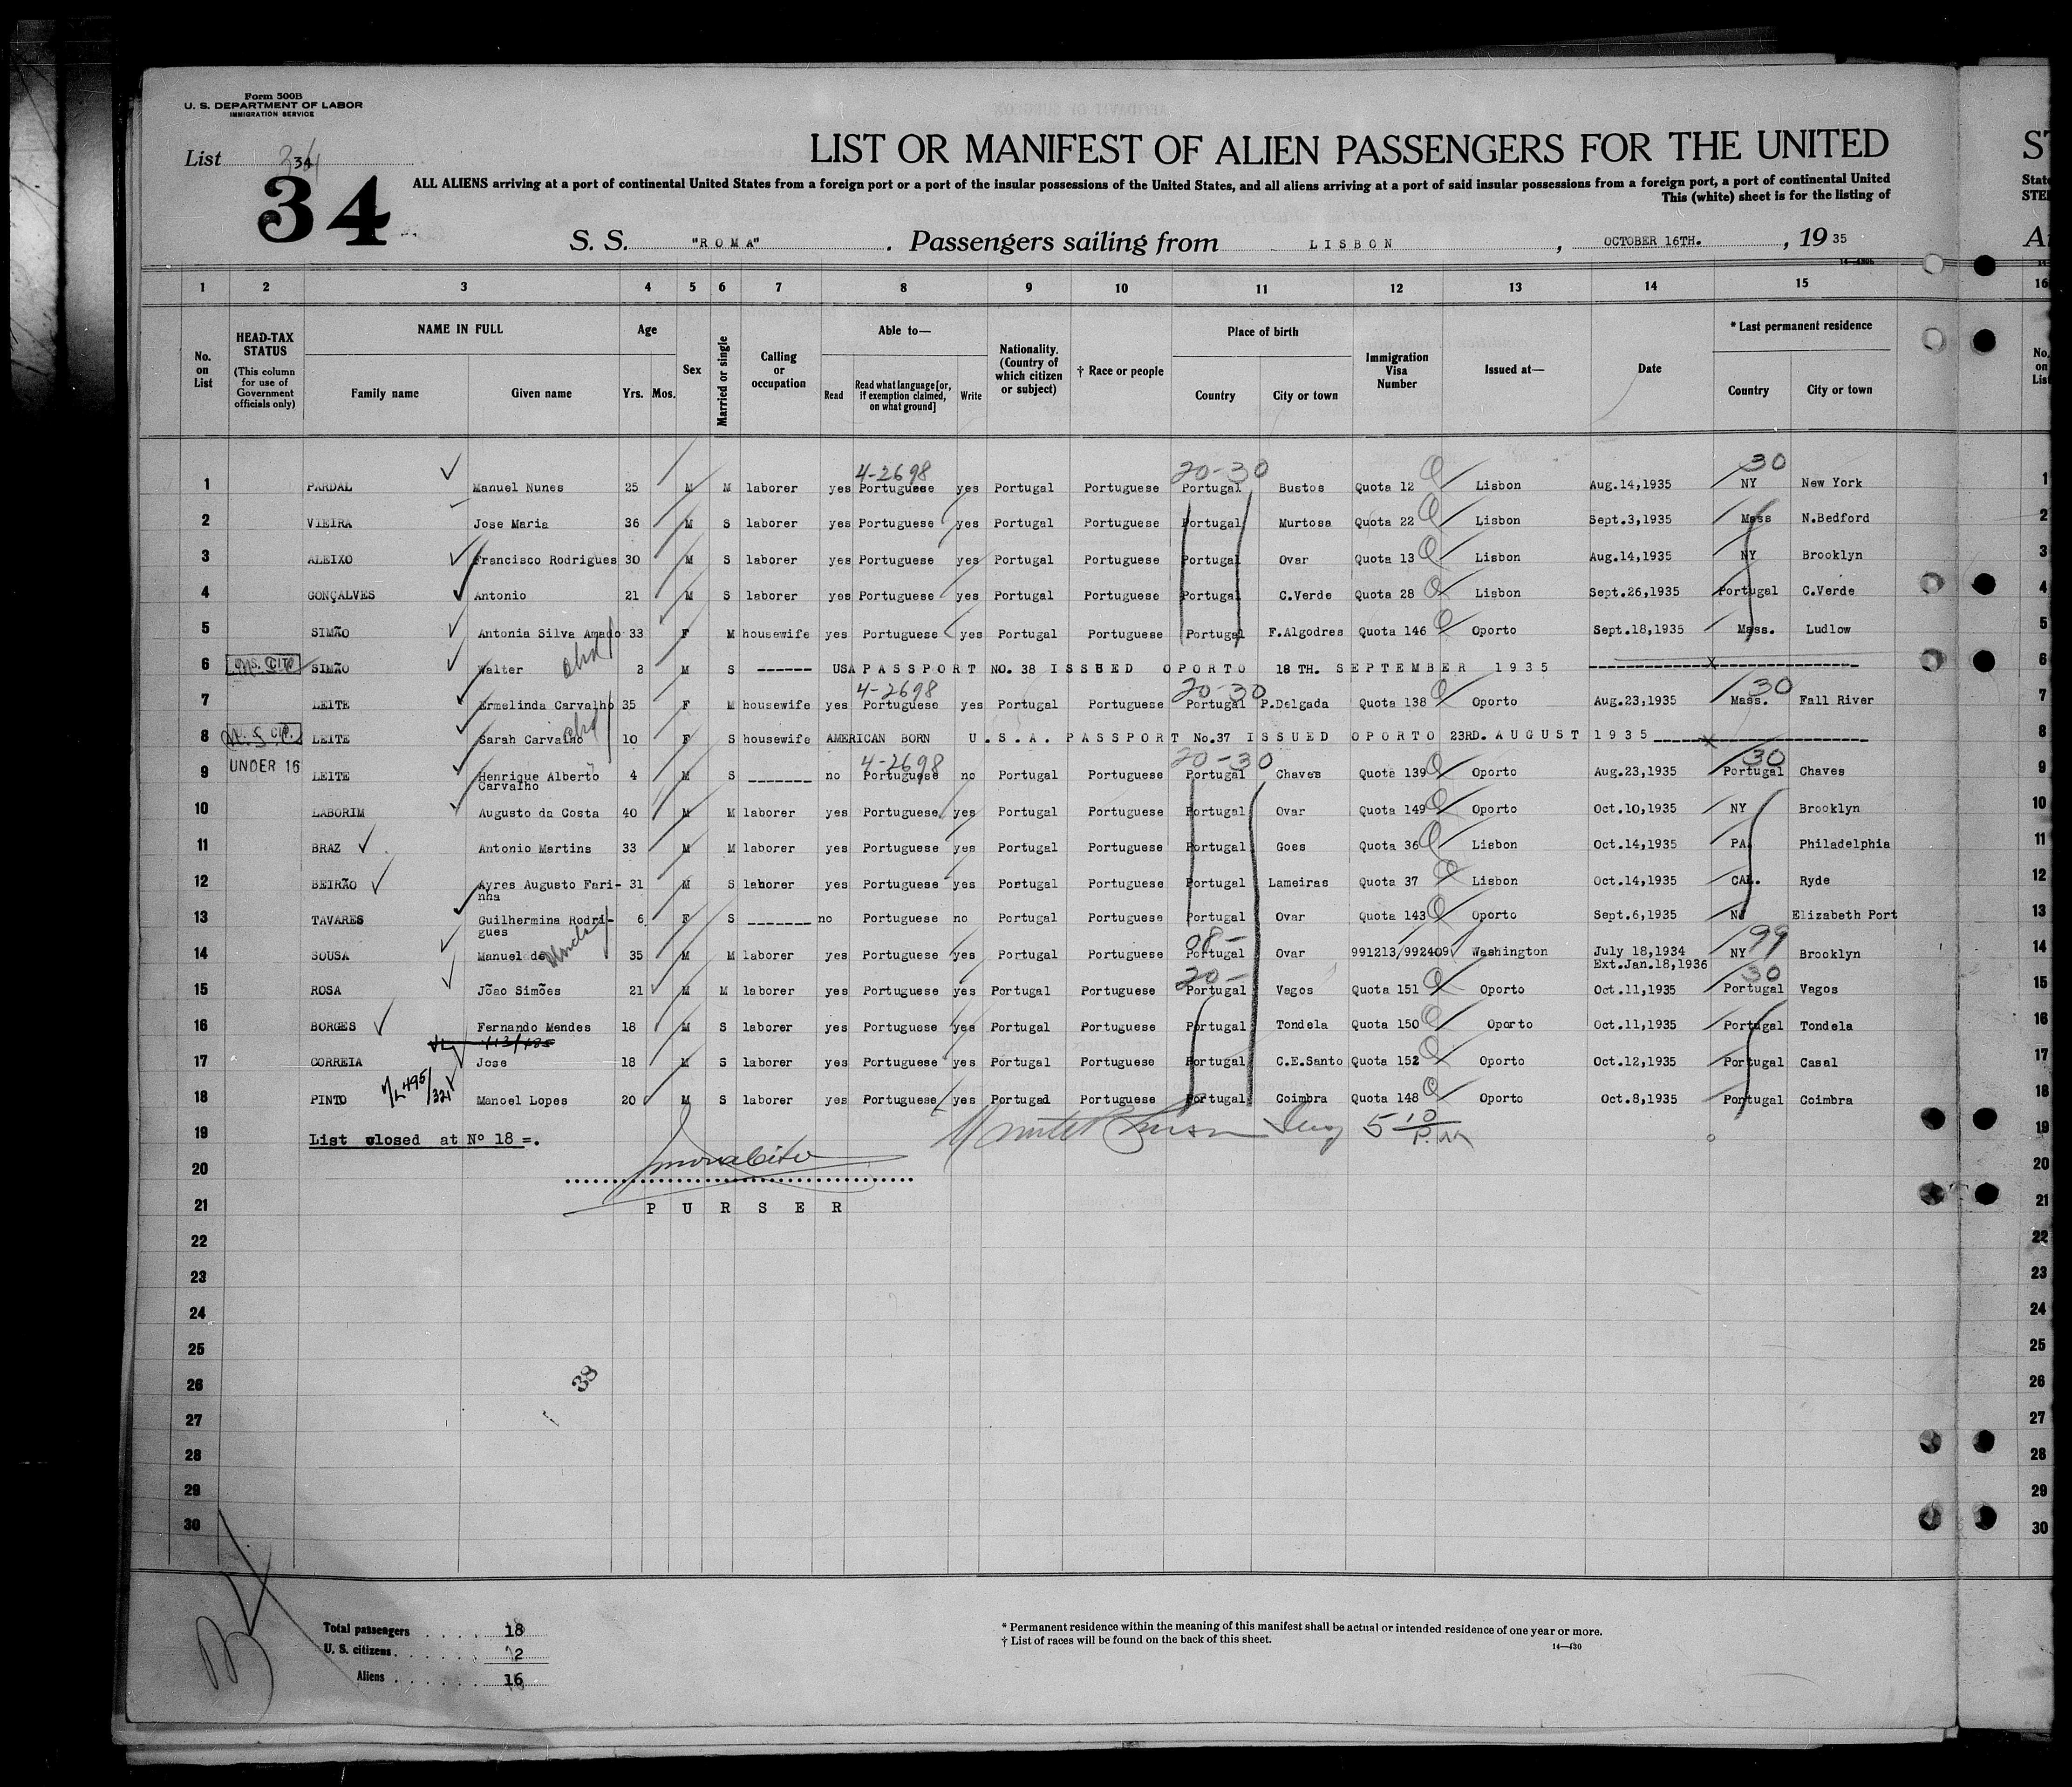 Form 500B
U. S. DEPARTMENT OF LABOR
IMMIGRATION SERVICE
List 34
34
LIST OR MANIFEST OF ALIEN PASSENGERS FOR THE UNITED
ALL ALIENS arriving at a port of continental United States from a foreign port or a port of the insular possessions of the United States, and all aliens arriving at a port of said insular possessions from a foreign port, a port of continental United
This (white) sheet is for the listing of
S. S. "ROMA". Passengers sailing from LISBON, OCTOBER 16TH., 1935
1 2 3 4 5 6 7 8 9 10 11 12 13 14 15 16
No. on List
HEAD-TAX STATUS (This column for use of Government officials only)
NAME IN FULL Family name Given name
Age Yrs. Mos.
Sex
Married or single
Calling or occupation
Able to— Read Read what language [or, if exemption claimed, on what ground] Write
Nationality. (Country of which citizen or subject)
† Race or people
Place of birth Country City or town
Immigration Visa Number
Issued at—
Date
* Last permanent residence Country City or town
4-2698 20-30 30
1 PARDAL Manuel Nunes 25 M M laborer yes Portuguese yes Portugal Portuguese Portugal Bustos Quota 12 Lisbon Aug.14,1935 NY New York 1
2 VIEIRA Jose Maria 36 M S laborer yes Portuguese yes Portugal Portuguese Portugal Murtosa Quota 22 Lisbon Sept.3,1935 Mass N.Bedford 2
3 ALEIXO Francisco Rodrigues 30 M S laborer yes Portuguese yes Portugal Portuguese Portugal Ovar Quota 13 Lisbon Aug.14,1935 NY Brooklyn 3
4 GONÇALVES Antonio 21 M S laborer yes Portuguese yes Portugal Portuguese Portugal C.Verde Quota 28 Lisbon Sept.26,1935 Portugal C.Verde 4
5 SIMÃO Antonia Silva Amado 33 F M housewife yes Portuguese yes Portugal Portuguese Portugal F.Algodres Quota 146 Oporto Sept.18,1935 Mass. Ludlow 5
6 U.S. CIT. SIMÃO Walter 3 M S ------ USA PASSPORT NO. 38 ISSUED OPORTO 18 TH. SEPTEMBER 1935 6
4-2698 20-30 30
7 LEITE Ermelinda Carvalho 35 F M housewife yes Portuguese yes Portugal Portuguese Portugal P.Delgada Quota 138 Oporto Aug.23,1935 Mass. Fall River 7
8 U. S. CIT. LEITE Sarah Carvalho 10 F S housewife AMERICAN BORN U.S.A. PASSPORT No.37 ISSUED OPORTO 23RD. AUGUST 1935 8
4-2698 20-30 30
9 UNDER 16 LEITE Henrique Alberto Carvalho 4 M S ------- no Portuguese no Portugal Portuguese Portugal Chaves Quota 139 Oporto Aug.23,1935 Portugal Chaves 9
10 LABORIM Augusto da Costa 40 M M laborer yes Portuguese yes Portugal Portuguese Portugal Ovar Quota 149 Oporto Oct.10,1935 NY Brooklyn 10
11 BRAZ Antonio Martins 33 M M laborer yes Portuguese yes Portugal Portuguese Portugal Goes Quota 36 Lisbon Oct.14,1935 PA. Philadelphia 11
12 BEIRÃO Ayres Augusto Fari-nha 31 M S laborer yes Portuguese yes Portugal Portuguese Portugal Lameiras Quota 37 Lisbon Oct.14,1935 CAL. Ryde 12
13 TAVARES Guilhermina Rodri-gues 6 F S ------- no Portuguese no Portugal Portuguese Portugal Ovar Quota 143 Oporto Sept.6,1935 NJ Elizabeth Port 13
08- 99
14 SOUSA Manuel de 35 M M laborer yes Portuguese yes Portugal Portuguese Portugal Ovar 991213/992409 Washington July 18,1934 Ext.Jan.18,1936 NY Brooklyn 14
20- 30
15 ROSA Jõao Simões 21 M M laborer yes Portuguese yes Portugal Portuguese Portugal Vagos Quota 151 Oporto Oct.11,1935 Portugal Vagos 15
16 BORGES Fernando Mendes 18 M S laborer yes Portuguese yes Portugal Portuguese Portugal Tondela Quota 150 Oporto Oct.11,1935 Portugal Tondela 16
17 CORREIA Jose 18 M S laborer yes Portuguese yes Portugal Portuguese Portugal C.E.Santo Quota 152 Oporto Oct.12,1935 Portugal Casal 17
18 PINTO V/L 495/321 Manoel Lopes 20 M S laborer yes Portuguese yes Portugal Portuguese Portugal Coimbra Quota 148 Oporto Oct.8,1935 Portugal Coimbra 18
19 List closed at Nº 18 =. Insp 5 10 P.M 19
20 20
21 PURSER 21
22 22
23 23
24 24
25 25
26 38 26
27 27
28 28
29 29
30 30
Total passengers 18
U. S. citizens 2
Aliens 16
* Permanent residence within the meaning of this manifest shall be actual or intended residence of one year or more.
† List of races will be found on the back of this sheet.
14—430